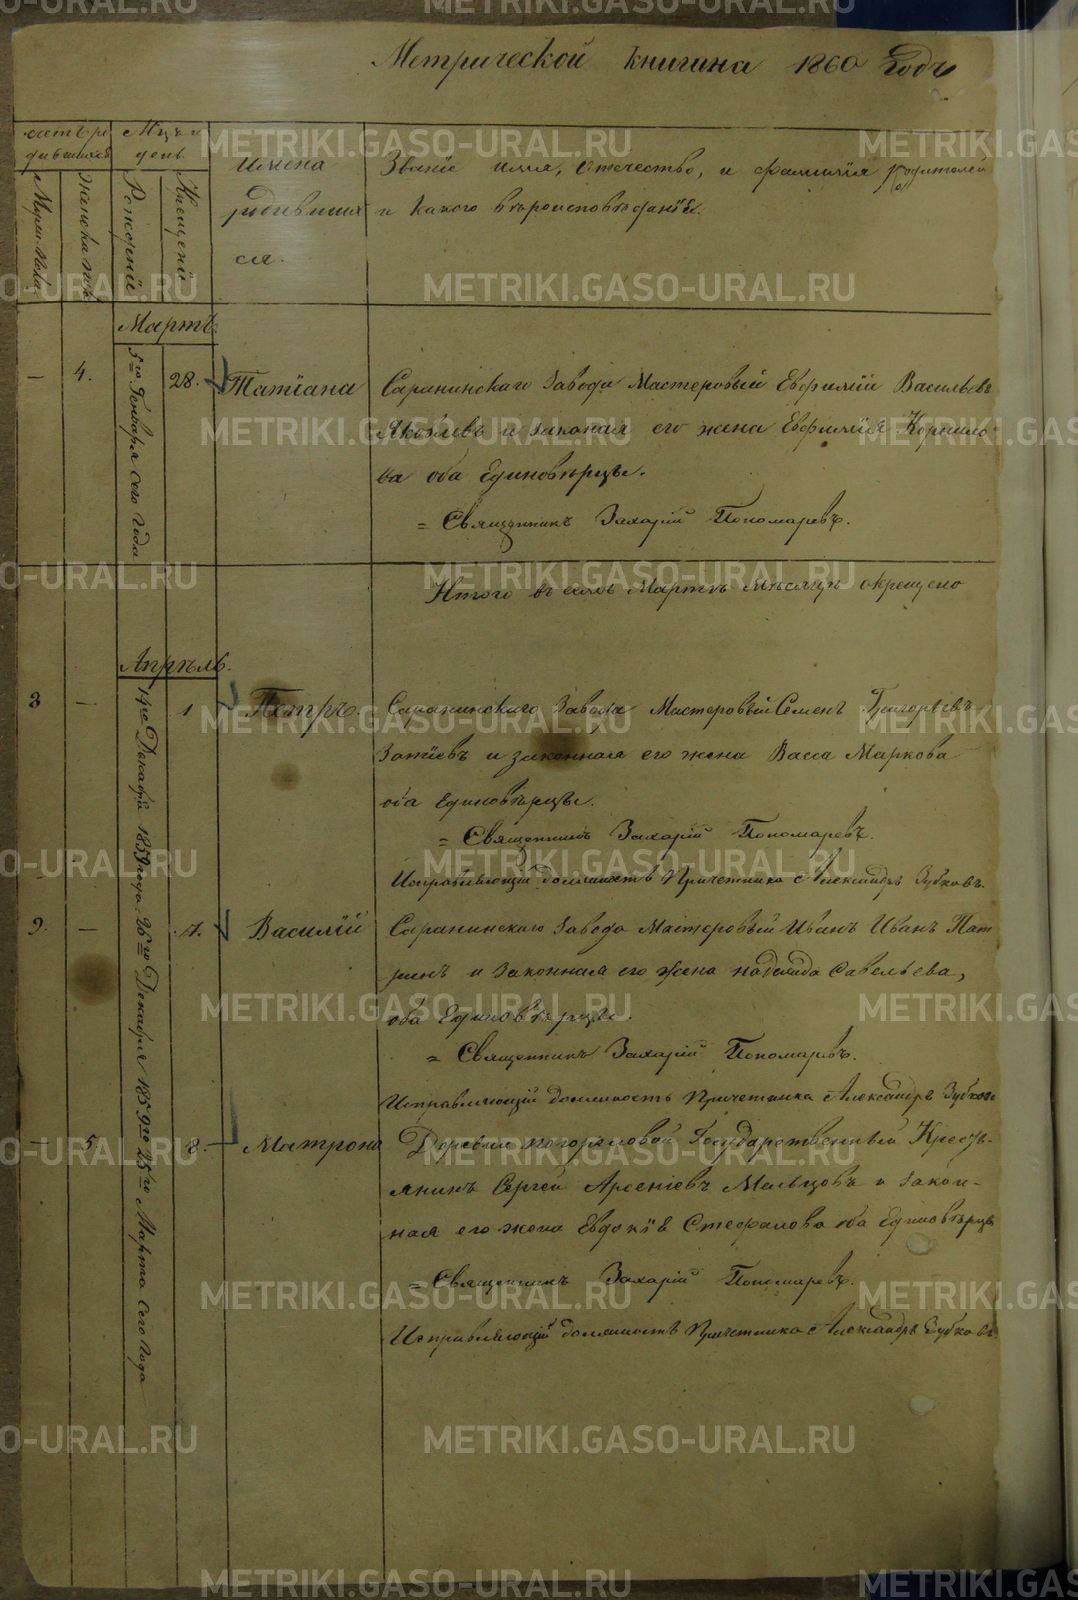 Метрической книги на 1860 годъ
счетъ ро
дившихся
Мужеска
Женска полъ
Мцъ и
день
Рожденiй
Крещенiй
имена
родивших
ся.
Званiе имя, Отечество, и фамилiя родителей
и какого вѣроисповѣданiя.
Мартъ
— 4. 5го Генваря сего года 28. Татiана
Саранинскаго Завода Мастеровый Евфимiй Васильевъ
Яковлевъ и законная его жена Евфимiя Корнило
ва оба Единовѣрцы.
= Священникъ Захарiй Пономаревъ.
Итого въ семъ Мартѣ мѣсяцѣ окрещено
Апрѣль.
3 — 14го Декабря 1859 года 1 Петръ.
Саранинскаго Завода Мастеровый Семенъ Григорьевъ
Зотѣевъ и законная его жена Васса Маркова
оба Единовѣрцы.
= Священникъ Захарiй Пономаревъ.
Исправляющiй должность Причетника Александръ Зубковъ.
9. — 26го Декабря 1859го 17. Василiй
Саранинскаго Завода Мастеровый Иванъ Иванъ Пат
ринъ и Законная его жена надежда Савельева,
оба Единовѣрцы.
= Священникъ Захарiй Пономаревъ.
Исправляющiй должность Причетника Александръ Зубковъ
— 5 25го Марта сего года 8. Матрона
Деревни Государственный Крест-
янинъ Сергей Арсенiевъ Мальцовъ и закон-
ная его жена Евдокiя Стефанова оба Единовѣрцы
= Священникъ Захарiй Пономаревъ.
Исправляющiй должность Причетника Александръ Зубковъ
METRIKI.GASO-URAL.RU